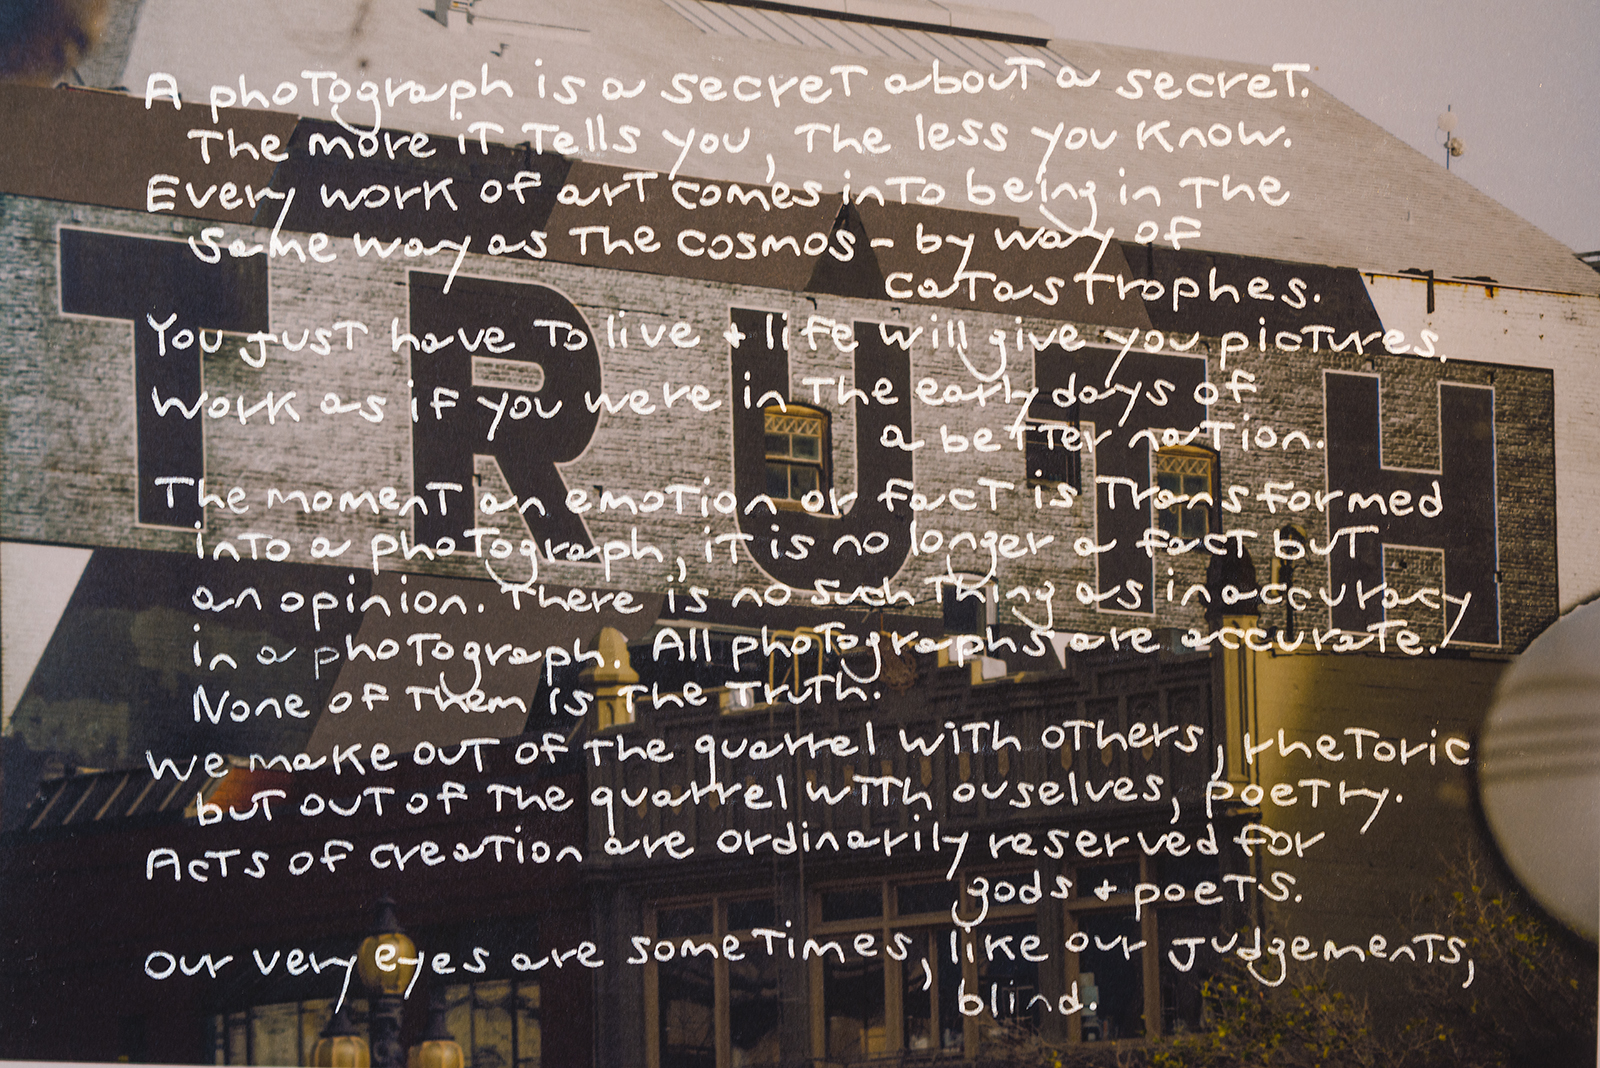 A photograph is a secret about a secret.
The more it tells you, the less you know.
Every work of art comes into being in the
same way as the cosmos - by way of
catastrophes.
You just have to live + life will give you pictures.
Work as if you were in the early days of
a better nation.
The moment an emotion or fact is transformed
into a photograph, it is no longer a fact but
an opinion. There is no such thing as inaccuracy
in a photograph. All photographs are accurate.
None of them is the truth.
We make out of the quarrel with others, rhetoric
but out of the quarrel with ouselves, poetry.
Acts of creation are ordinarily reserved for
gods + poets.
Our very eyes are sometimes, like our judgements,
blind.
TRUTH